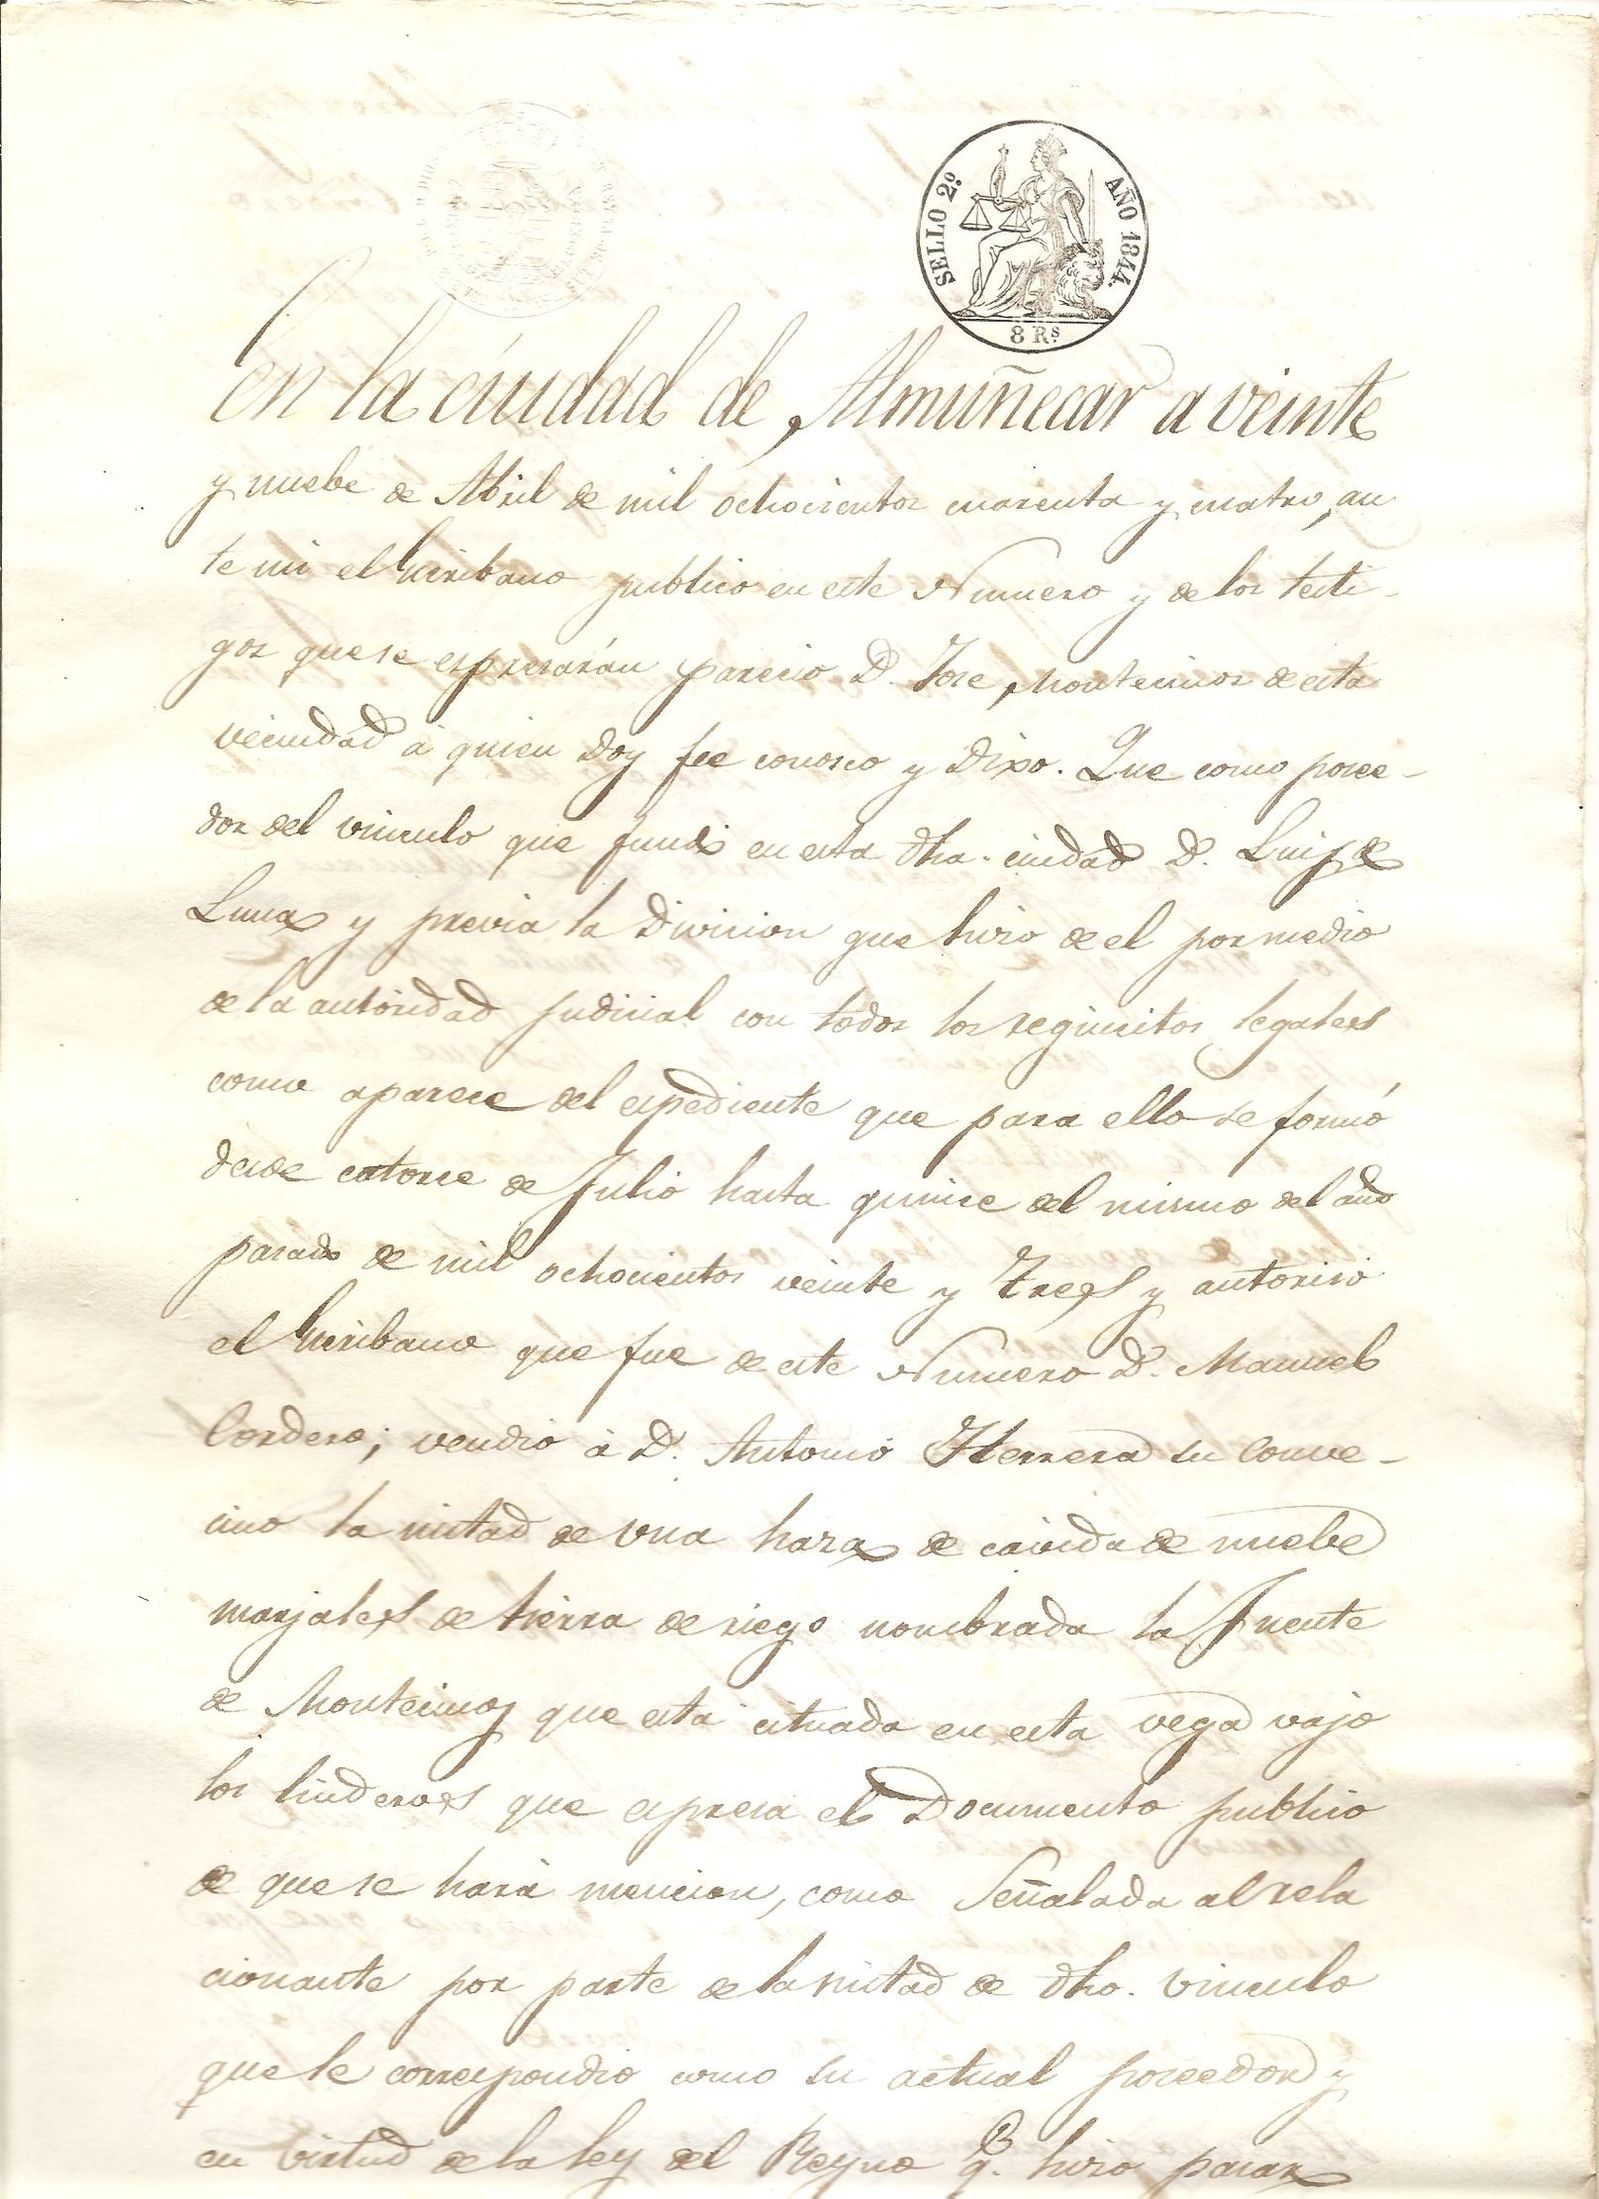 SELLO 2º. AÑO 1844.
8 Rs.
En la ciudad de Almuñecar a veinte
y nuebe de Abril de mil ochocientos cuarenta y cuatro, an
te mi el Escribano publico en este Numero y de los testi-
gos que se espresarán parecio D. Jose Montecinos de esta
vecindad á quien doy fee conosco y Dixo. Que como posee-
dor del vinculo que fundó en esta dha. ciudad D. Luis de
Luna y previa la Divicion que hizo de el por medio
de la autoridad judicial con todos los requicitos legales
como aparece del espediente que para ello se formó
desde catorce de Julio hasta quince del mismo del año
pasado de mil ochocientos veinte y Tres y autoriso
el Escribano que fue de este Numero D. Manuel
Cordero; vendio à D. Antonio Herrera su Conve-
cino la mitad de una haza de cavida de nuebe
marjales de tierra de riego nombrada la Fuente
de Montecinos que está cituada en esta vega vajo
los linderos que espresa el Documento publico
de que se hará mencion, como Señalada al rela
cionante por parte de la mitad de dho. vinculo
que le correspondio como su actual poseedor y
en virtud de la ley del Reyno q. hizo pasar